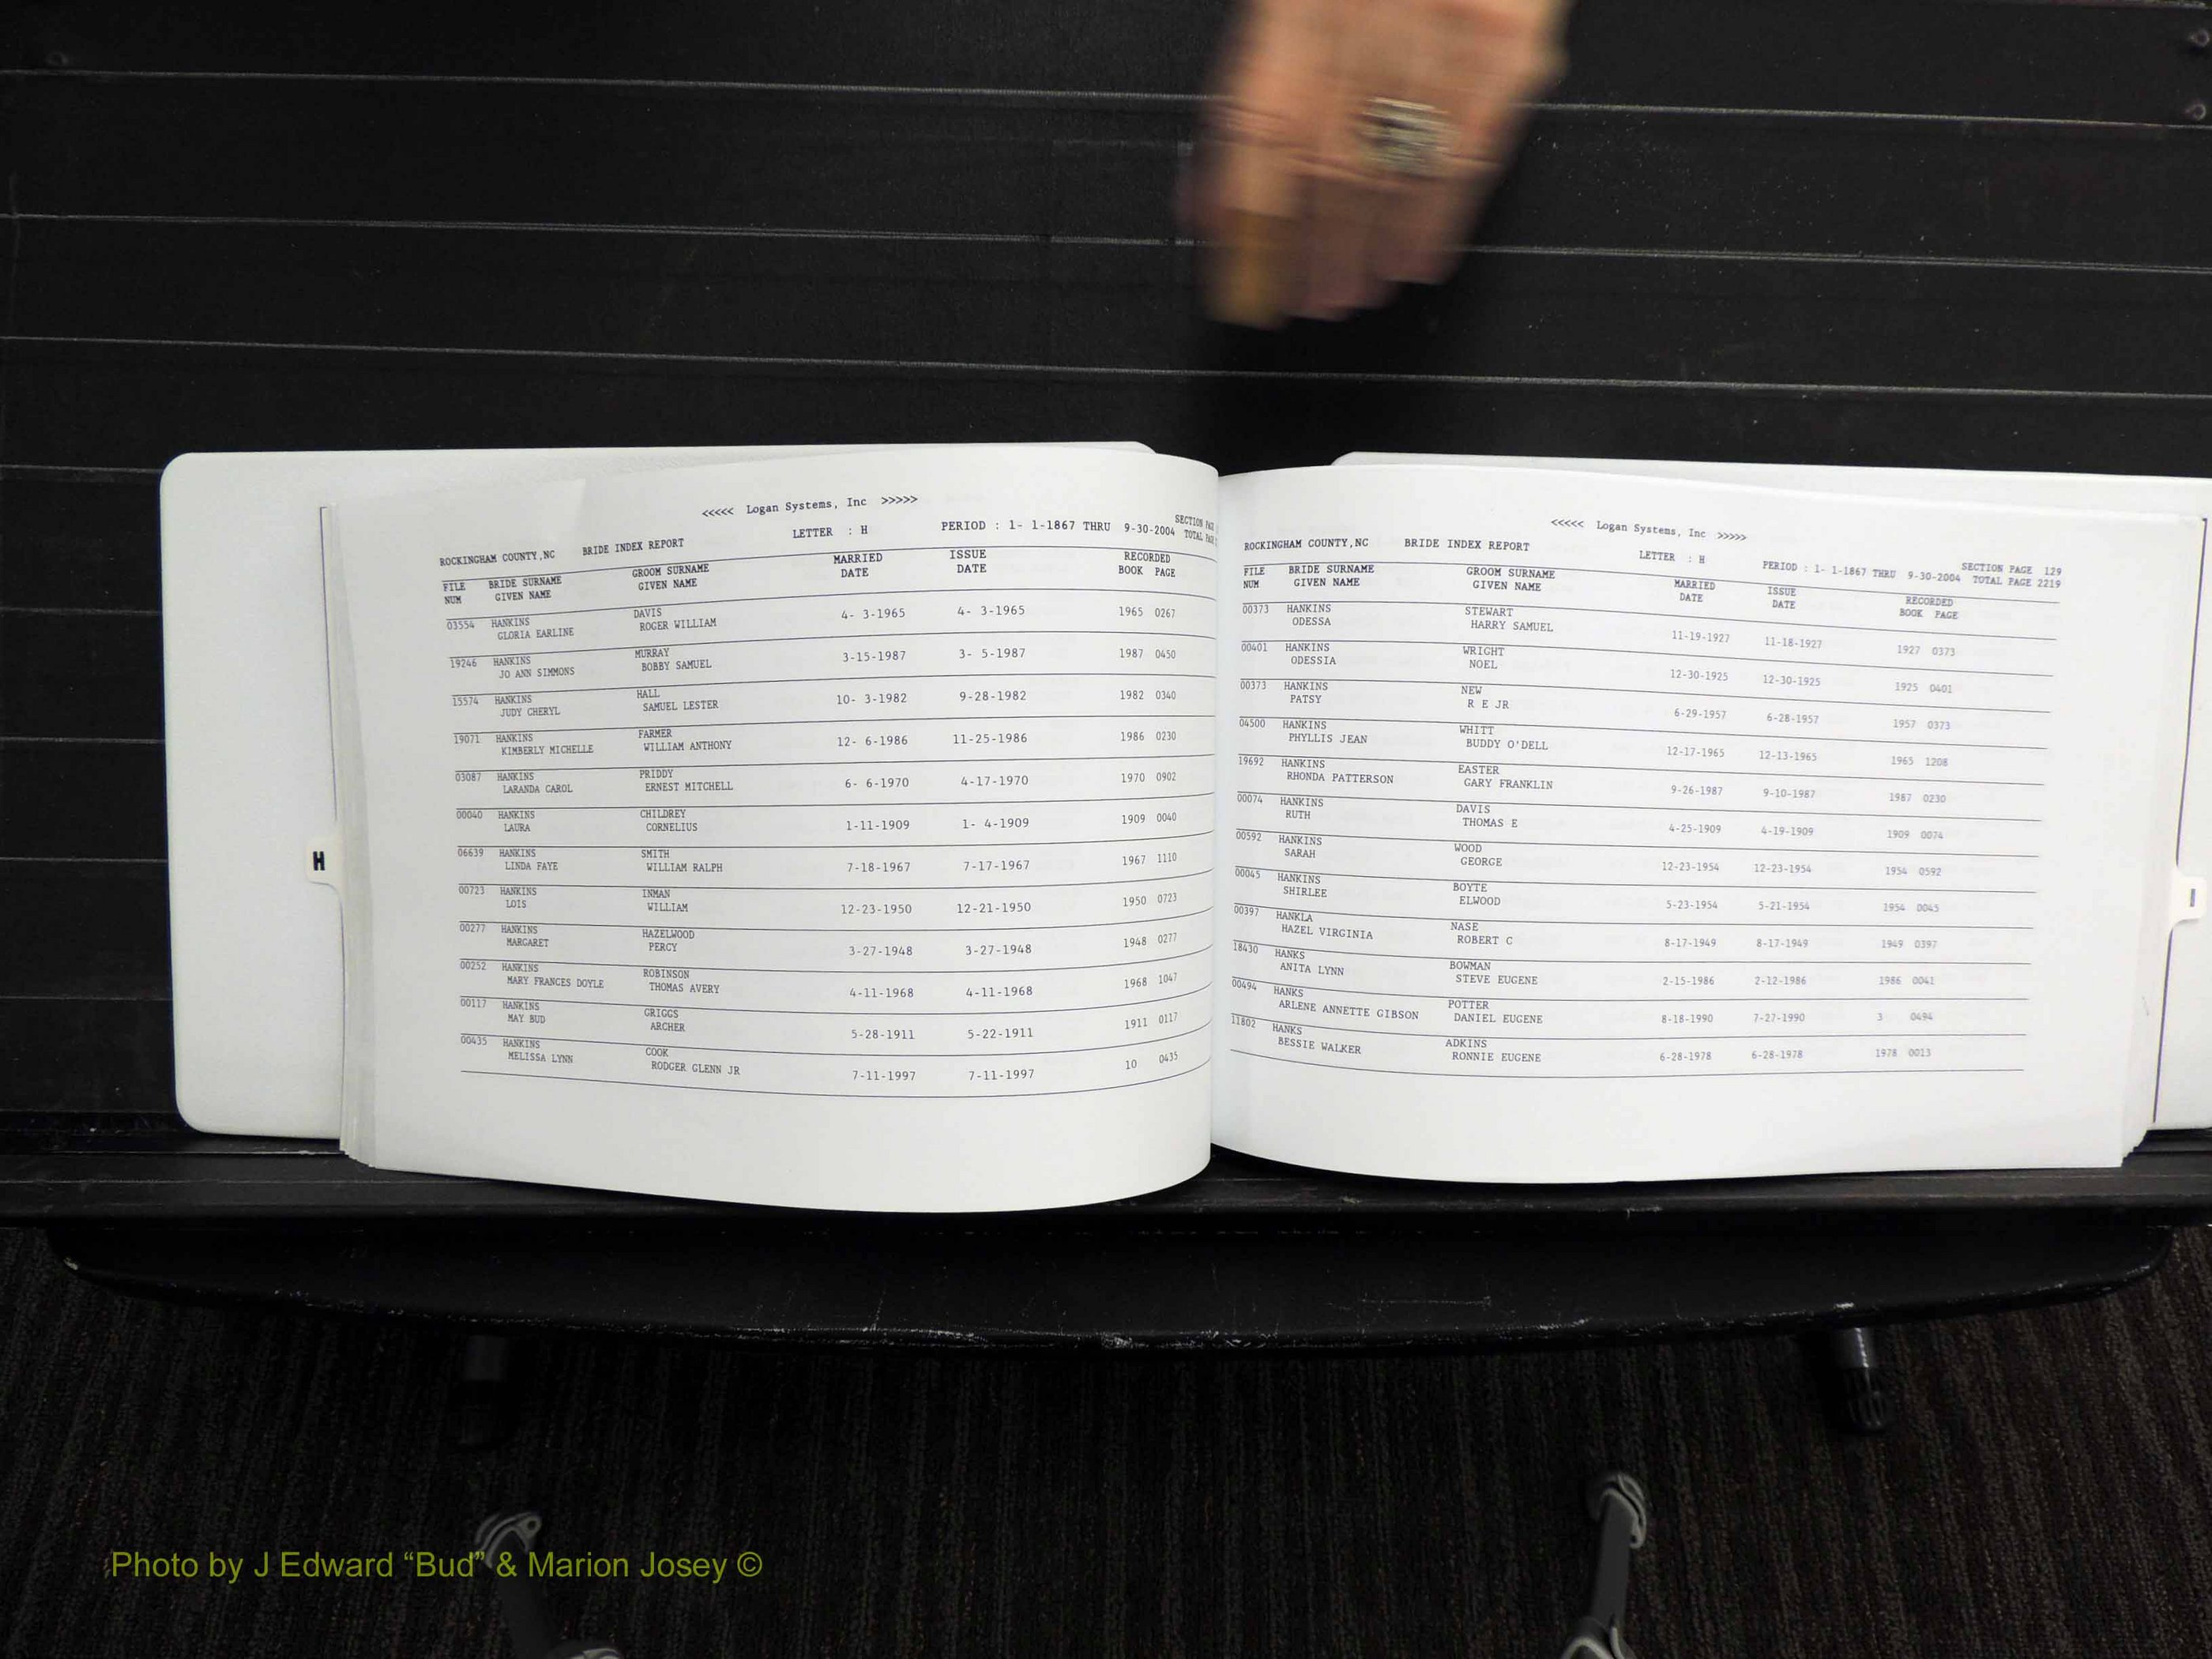 <<<<< Logan Systems, Inc >>>>>
ROCKINGHAM COUNTY,NC BRIDE INDEX REPORT LETTER : H PERIOD : 1- 1-1867 THRU 9-30-2004 SECTION TOTAL
FILE BRIDE SURNAME GROOM SURNAME MARRIED ISSUE RECORDED
NUM GIVEN NAME GIVEN NAME DATE DATE BOOK PAGE
03554 HANKINS DAVIS 4- 3-1965 4- 3-1965 1965 0267
GLORIA EARLINE ROGER WILLIAM
19246 HANKINS MURRAY 3-15-1987 3- 5-1987 1987 0450
JO ANN SIMMONS BOBBY SAMUEL
15574 HANKINS HALL 10- 3-1982 9-28-1982 1982 0340
JUDY CHERYL SAMUEL LESTER
19071 HANKINS FARMER 12- 6-1986 11-25-1986 1986 0230
KIMBERLY MICHELLE WILLIAM ANTHONY
03087 HANKINS PRIDDY 6- 6-1970 4-17-1970 1970 0902
LARANDA CAROL ERNEST MITCHELL
00040 HANKINS CHILDREY 1-11-1909 1- 4-1909 1909 0040
LAURA CORNELIUS
06639 HANKINS SMITH 7-18-1967 7-17-1967 1967 1110
LINDA FAYE WILLIAM RALPH
00723 HANKINS INMAN 12-23-1950 12-21-1950 1950 0723
LOIS WILLIAM
00277 HANKINS HAZELWOOD 3-27-1948 3-27-1948 1948 0277
MARGARET PERCY
00252 HANKINS ROBINSON 4-11-1968 4-11-1968 1968 1047
MARY FRANCES DOYLE THOMAS AVERY
00117 HANKINS GRIGGS 5-28-1911 5-22-1911 1911 0117
MAY BUD ARCHER
00435 HANKINS COOK 7-11-1997 7-11-1997 10 0435
MELISSA LYNN RODGER GLENN JR
H
<<<<< Logan Systems, Inc >>>>>
ROCKINGHAM COUNTY,NC BRIDE INDEX REPORT LETTER : H PERIOD : 1- 1-1867 THRU 9-30-2004 SECTION PAGE 129
TOTAL PAGE 2219
FILE BRIDE SURNAME GROOM SURNAME MARRIED ISSUE RECORDED
NUM GIVEN NAME GIVEN NAME DATE DATE BOOK PAGE
00373 HANKINS STEWART 11-19-1927 11-18-1927 1927 0373
ODESSA HARRY SAMUEL
00401 HANKINS WRIGHT 12-30-1925 12-30-1925 1925 0401
ODESSIA NOEL
00373 HANKINS NEW 6-29-1957 6-28-1957 1957 0373
PATSY R E JR
04500 HANKINS WHITT 12-17-1965 12-13-1965 1965 1208
PHYLLIS JEAN BUDDY O'DELL
19692 HANKINS EASTER 9-26-1987 9-10-1987 1987 0230
RHONDA PATTERSON GARY FRANKLIN
00074 HANKINS DAVIS 4-25-1909 4-19-1909 1909 0074
RUTH THOMAS E
00592 HANKINS WOOD 12-23-1954 12-23-1954 1954 0592
SARAH GEORGE
00045 HANKINS BOYTE 5-23-1954 5-21-1954 1954 0045
SHIRLEE ELWOOD
00397 HANKLA NASE 8-17-1949 8-17-1949 1949 0397
HAZEL VIRGINIA ROBERT C
18430 HANKS BOWMAN 2-15-1986 2-12-1986 1986 0041
ANITA LYNN STEVE EUGENE
00494 HANKS POTTER 8-18-1990 7-27-1990 3 0494
ARLENE ANNETTE GIBSON DANIEL EUGENE
11802 HANKS ADKINS 6-28-1978 6-28-1978 1978 0013
BESSIE WALKER RONNIE EUGENE
I
Photo by J Edward “Bud” & Marion Josey ©